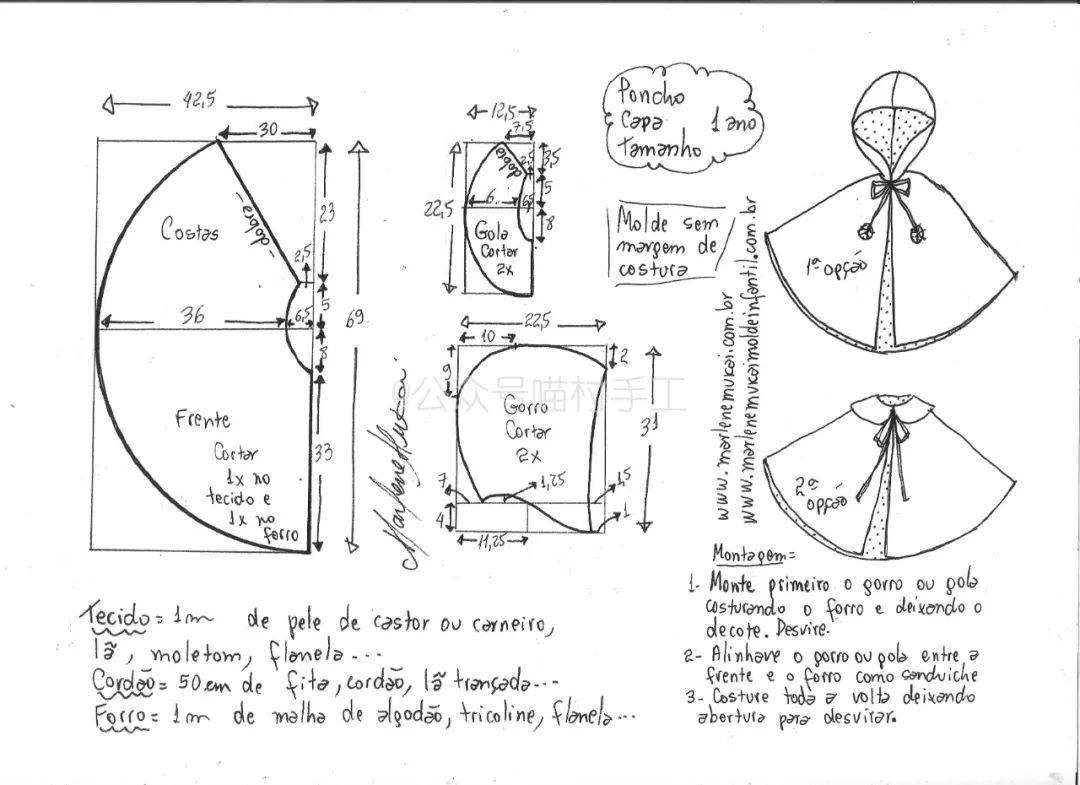 42,5
30
Costas
dobra
23
2,5
5
6,5
36
69
8
Frente
Cortar
1x no
tecido e
1x no
forro
33
12,5
7,5
dobra
2,5
3,5
5
6
6,5
22,5
8
Gola
Cortar
2x
Poncho
Capa 1 ano
tamanho
Molde sem
margem de
costura
22,5
10
2
9
Gorro
Cortar
2x
31
7
1,25
1,5
4
1
11,25
Marlene Mukai
@公众号喵村手工
www.marlenemukai.com.br
www.marlenemukaimoldeinfantil.com.br
1ª opção
2ª
opção
Tecido = 1m de pele de castor ou carneiro,
lã, moletom, flanela...
Cordão = 50 cm de fita, cordão, lã trançada...
Forro = 1m de malha de algodão, tricoline, flanela...
Montagem =
1- Monte primeiro o gorro ou gola
costurando o forro e deixando o
decote. Desvire.
2- Alinhave o gorro ou gola entre a
frente e o forro como sanduiche
3- Costure toda a volta deixando
abertura para desvirar.